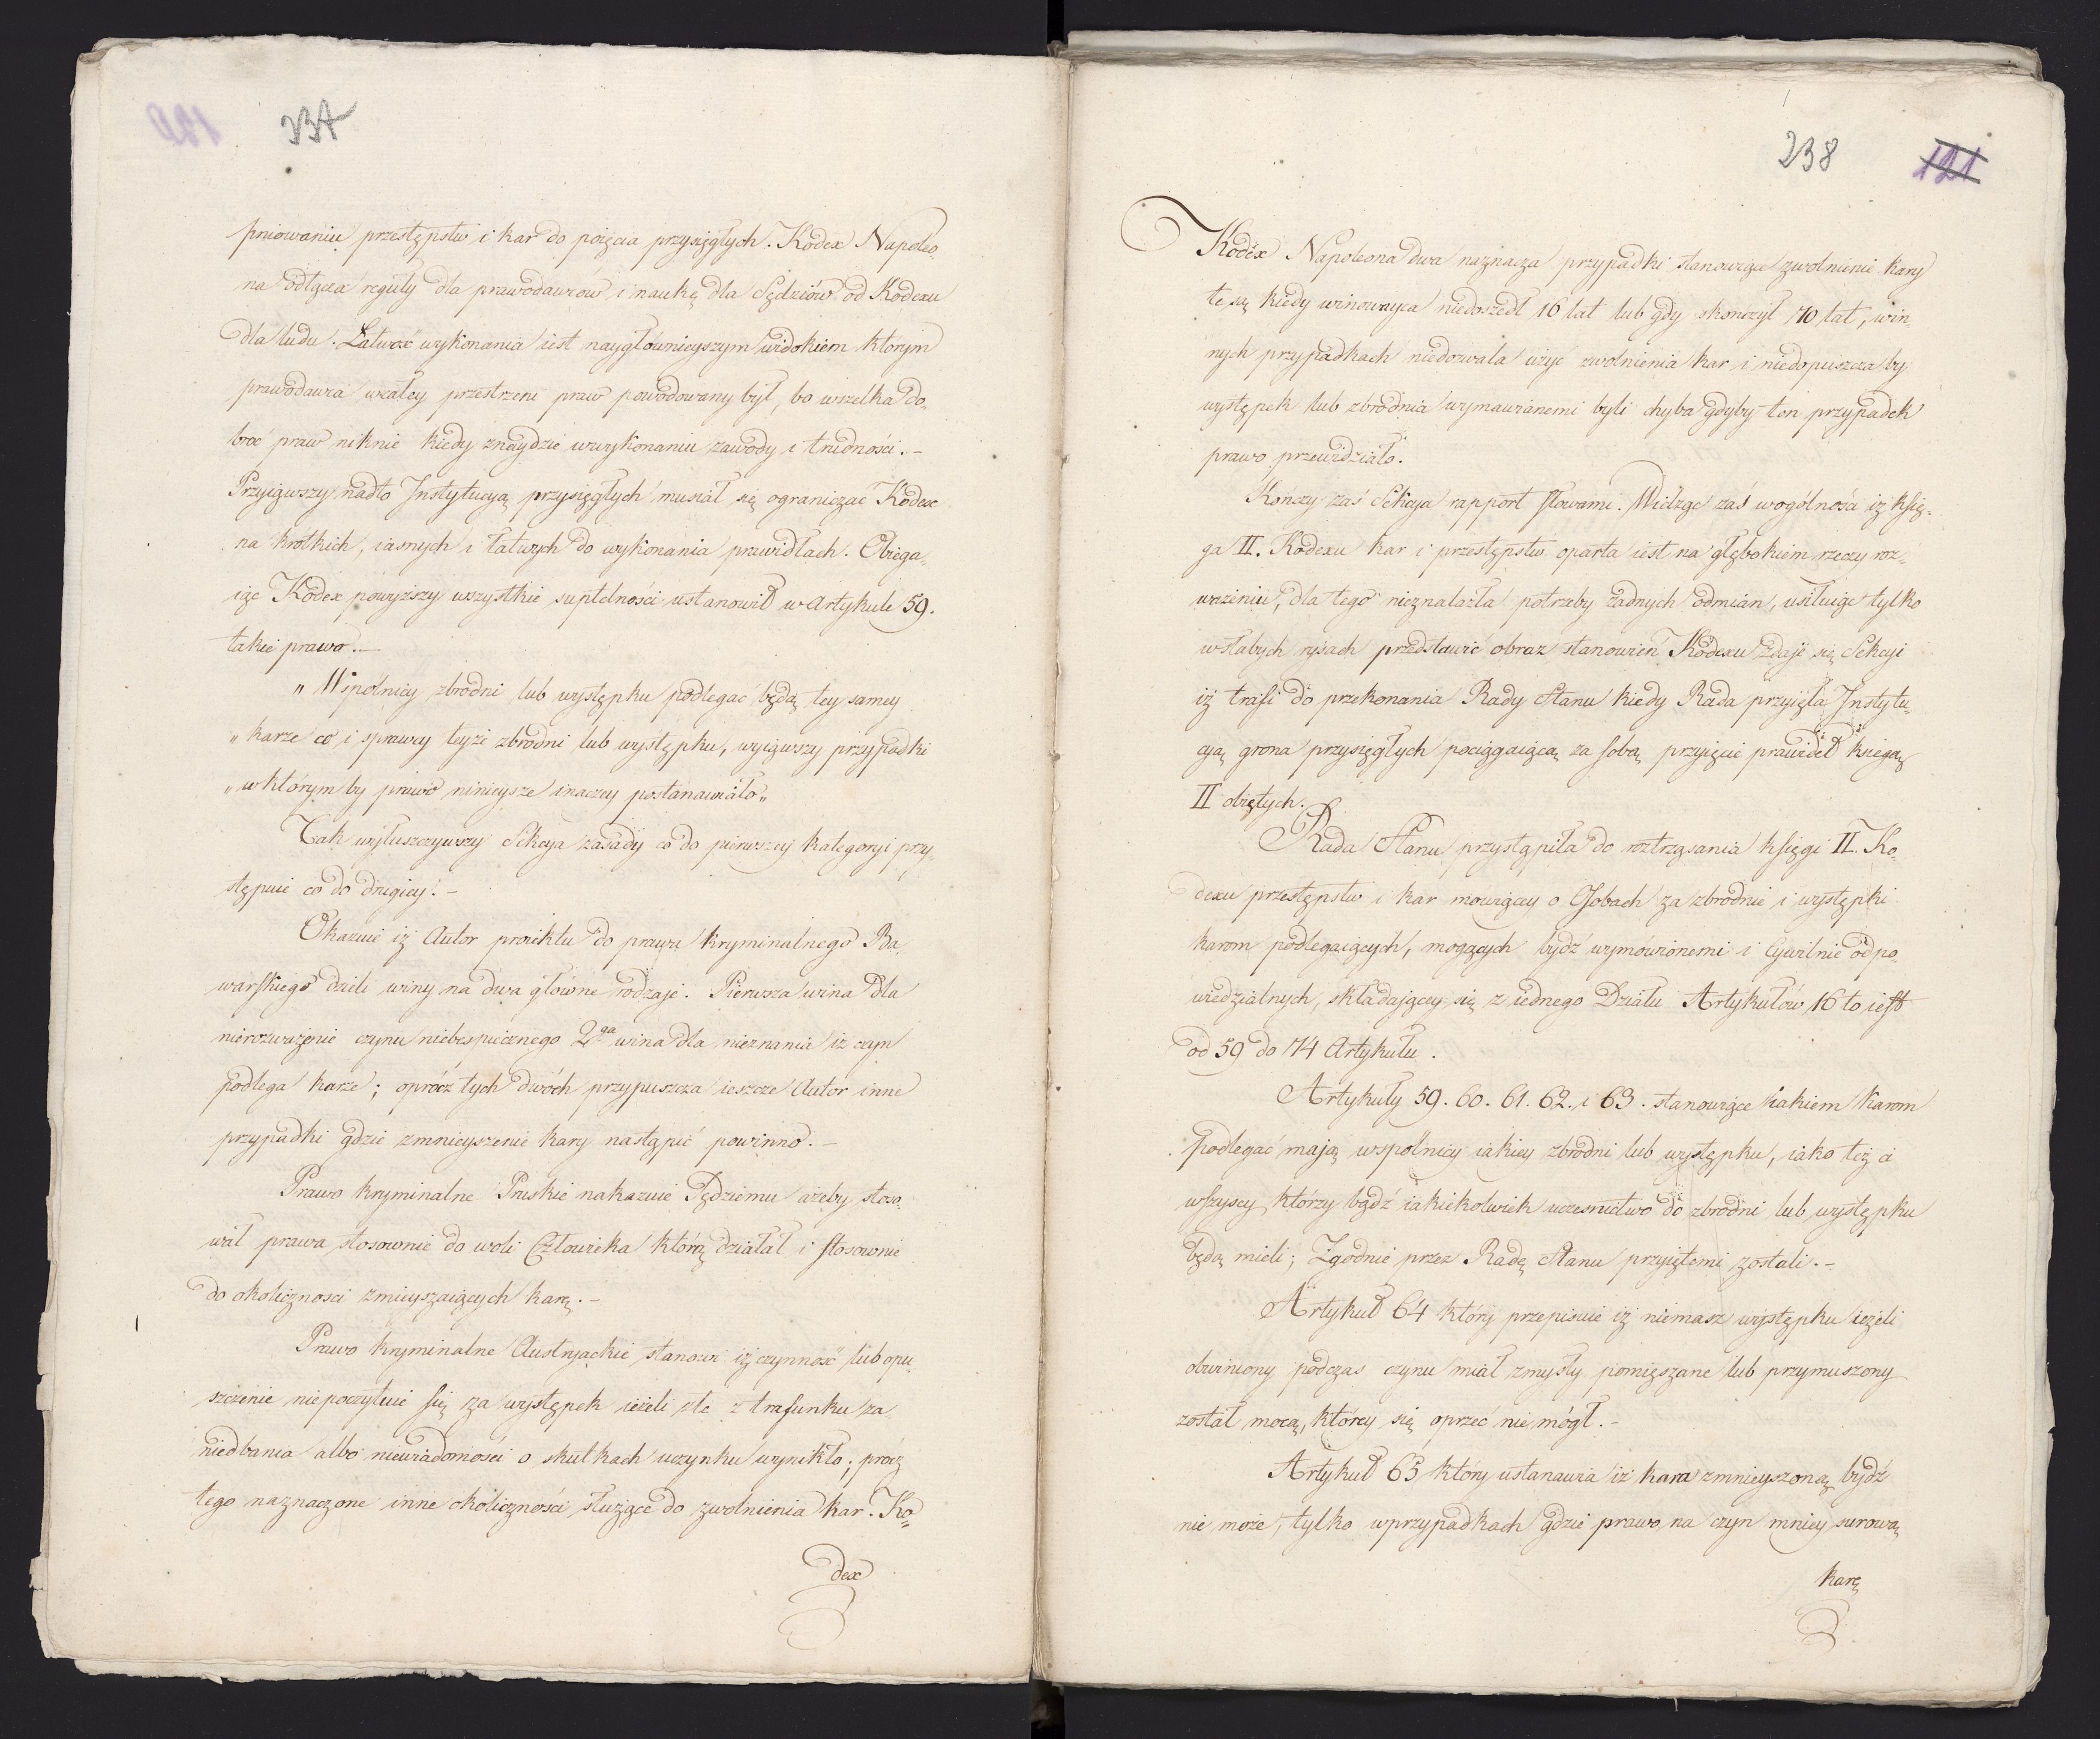 237
pniowaniu przestępstw i kar do poięcia przysięgłych. Kodex Napoleo„
na odłącza reguły dla prawodawców i naukę dla Sędziów od Kodexu
dla ludu. Łatwość wykonania iest naygłównieyszym widokiem którym
prawodawca wcałey przestrzeni praw powodowany był, bo wszelka do„
broć praw niknie kiedy znaydzie wwykonaniu zawody i trudności.–
Przyiąwszy nadto Instytucyą przysięgłych musiał się ograniczać Kodex
na krótkich, iasnych i łatwych do wykonania prawidłach. Obiega„
iąc Kodex powyższy wszystkie suptelności ustanowił w Artykule 59.
takie prawo.–
„Wspólnicy zbrodni lub występku podlegać będą tey samey
„karze co i sprawcy teyże zbrodni lub występku, wyiąwszy przypadki
„w którym by prawo ninieysze inaczey postanawiało„
Tak wyłuszczywszy Sekcya zasady co do pierwszey kategoryi przy„
stępuie co do drugiey.–
Okazuie iż Autor proiektu do prawa kryminalnego Ba„
warskiego dzieli winy na dwa główne rodzaje. Pierwsza wina dla
nierozważenie czynu niebespiecznego 2ga wina dla nieznania iż czyn
podlega karze; oprócz tych dwóch przypuszcza ieszcze Autor inne
przypadki gdzie zmnieyszenie kary nastąpić powinno.–
Prawo kryminalne Pruskie nakazuie Sędziemu ażeby stoso„
wał prawa stosownie do woli Człowieka którą działał i stosownie
do okoliczności zmieyszaiących karę.–
Prawo kryminalne Austryackie stanowi iż czynność lub opu„
szczenie niepoczytuie się za występek ieżeli złe z trafunku za
niedbania albo niewiadomości o skutkach uczynku wynikło; prócz
tego naznaczone inne okoliczności służące do zwolnienia kar. Ko„
dex
238
121
Kodex Napoleona dwa naznacza przypadki stanowiące zwolnienie kary
te są kiedy winowayca niedoszedł 16 lat lub gdy skończył 70 lat, w in„
nych przypadkach niedozwala użyć zwolnienia kar i niedopuszcza by
występek lub zbrodnia wymawianemi byli chyba gdyby ten przypadek
prawo przewidziało.
Kończy zaś Sekcya rapport słowami. Widząc zaś wogólności iż księ„
ga II. Kodexu kar i przestępstw oparta iest na głębokiem rzeczy roz„
ważeniu, dla tego nieznalazła potrzeby żadnych odmian, usiłuiąc tylko
wsłabych rysach przedstawić obraz stanowień Kodexu zdaje się Sekcyi
iż trafi do przekonania Rady Stanu kiedy Rada przyięła Instytu„
cyą grona przysięgłych pociągaiącą za sobą przyięcie prawideł księgą
II obiętych.
Rada Stanu przystąpiła do roztrząsania księgi II. Ko„
dexu przestępstw i kar mówiącey o Osobach za zbrodnie i występki
karom podlegaiących, mogących bydź wymówionemi i Cywilnie odpo„
wiedzialnych, składającey się z iednego Działu Artykułów 16 to iest
od 59 do 74 Artykułu.
Artykuły 59. 60. 61. 62. i 63. stanowiące iakiem karom
podlegać mają wspólnicy iakiey zbrodni lub występku, iako też ci
wszyscy którzy bądź iakiekolwiek uczesnictwo do zbrodni lub występku
będą mieli; Zgodnie przez Radę Stanu przyiętemi zostali.–
Artykuł 64 który przepisuie iż niemasz występku ieżeli
obwiniony podczas czynu miał zmysły pomięszane lub przymuszony
został mocą, którey się oprzeć nie mógł.–
Artykuł 65 który ustanawia iż kara zmnieyszoną bydź
nie może, tylko wprzypadkach gdzie prawo na czyn mniey surową
karę